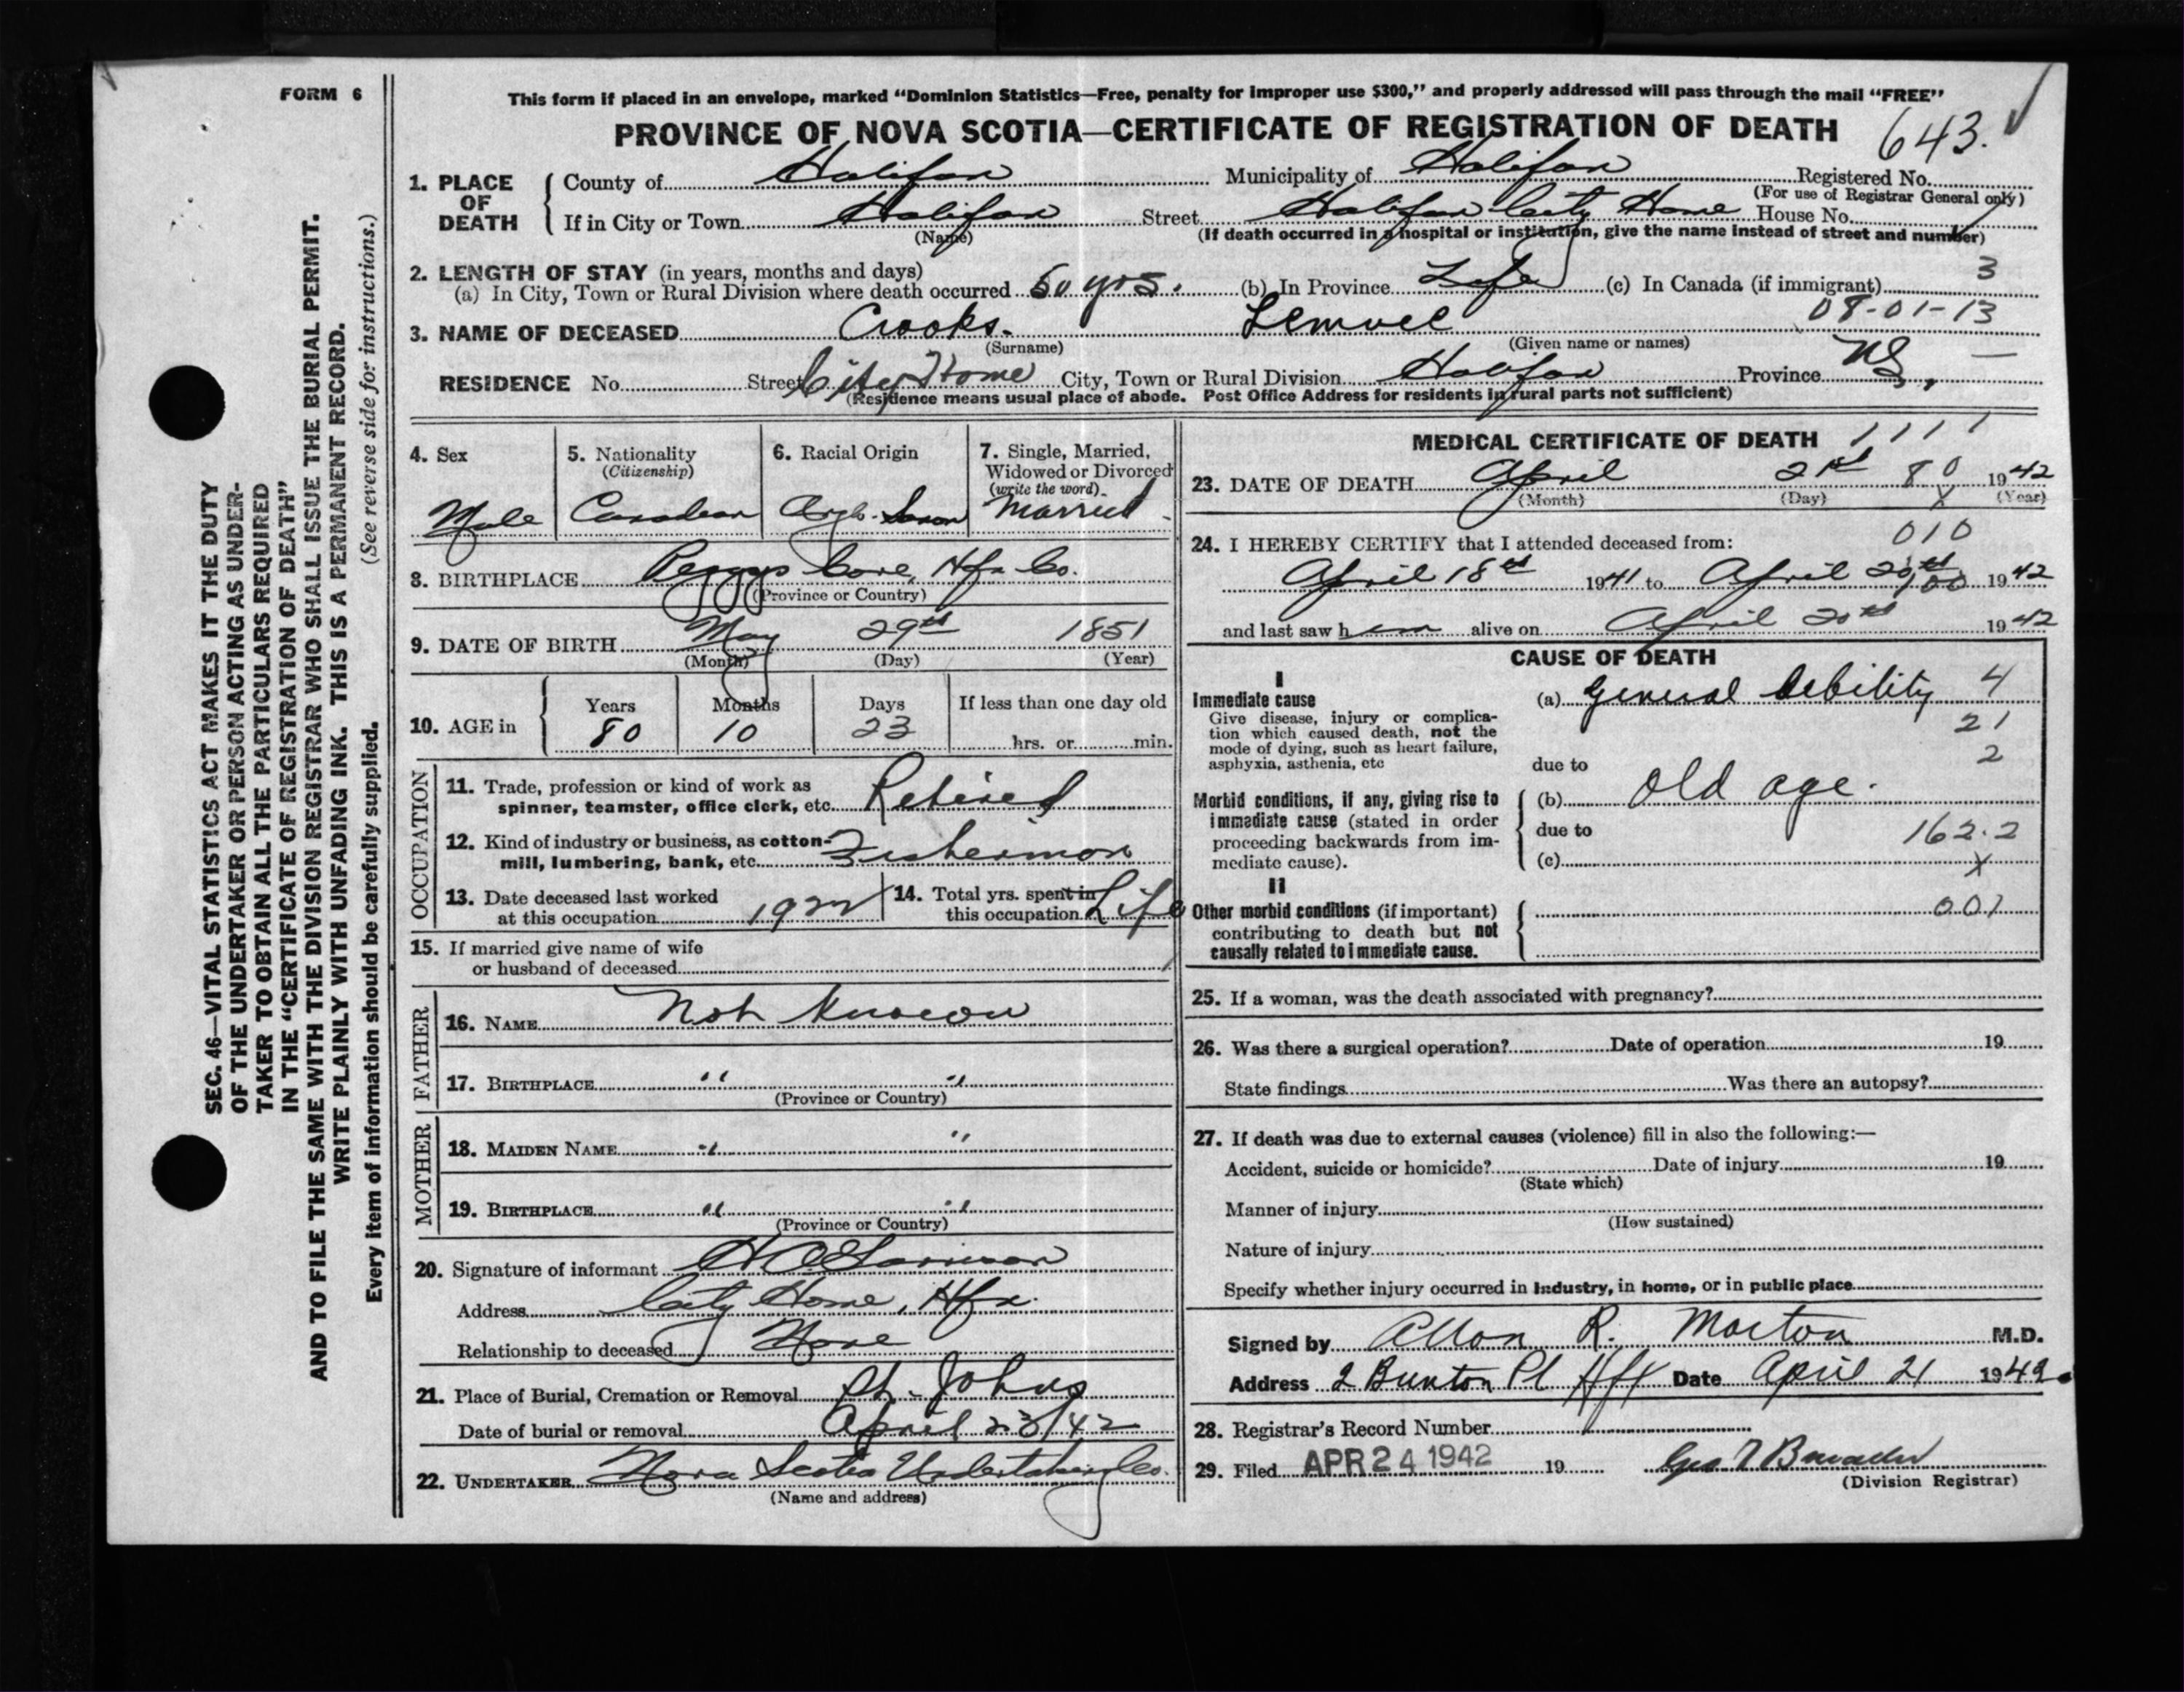 FORM 6
This form if placed in an envelope, marked “Dominion Statistics—Free, penalty for improper use $300,” and properly addressed will pass through the mail “FREE”
PROVINCE OF NOVA SCOTIA—CERTIFICATE OF REGISTRATION OF DEATH 643.
SEC. 46—VITAL STATISTICS ACT MAKES IT THE DUTY
OF THE UNDERTAKER OR PERSON ACTING AS UNDER-
TAKER TO OBTAIN ALL THE PARTICULARS REQUIRED
IN THE “CERTIFICATE OF REGISTRATION OF DEATH”
AND TO FILE THE SAME WITH THE DIVISION REGISTRAR WHO SHALL ISSUE THE BURIAL PERMIT.
WRITE PLAINLY WITH UNFADING INK. THIS IS A PERMANENT RECORD.
Every item of information should be carefully supplied. (See reverse side for instructions.)
1. PLACE OF DEATH
County of Halifax Municipality of Halifax Registered No.
(For use of Registrar General only)
If in City or Town Halifax Street Halifax City Home House No.
(Name) (If death occurred in a hospital or institution, give the name instead of street and number)
2. LENGTH OF STAY (in years, months and days)
(a) In City, Town or Rural Division where death occurred 50 yrs. (b) In Province Life (c) In Canada (if immigrant) 3
08-01-13
3. NAME OF DECEASED Crooks. Lemuel
(Surname) (Given name or names)
RESIDENCE No. Street City Home City, Town or Rural Division Halifax Province NS.
(Residence means usual place of abode. Post Office Address for residents in rural parts not sufficient)
4. Sex
Male
5. Nationality
(Citizenship)
Canadian
6. Racial Origin
Anglo-Saxon
7. Single, Married,
Widowed or Divorced
(write the word)
Married
8. BIRTHPLACE Peggys Cove, Hfx Co.
(Province or Country)
9. DATE OF BIRTH May 29th 1851
(Month) (Day) (Year)
10. AGE in
Years Months Days If less than one day old
80 10 23 hrs. or min.
OCCUPATION
11. Trade, profession or kind of work as
spinner, teamster, office clerk, etc. Retired
12. Kind of industry or business, as cotton-
mill, lumbering, bank, etc. Fisherman
13. Date deceased last worked
at this occupation 1922
14. Total yrs. spent in
this occupation Life
15. If married give name of wife
or husband of deceased
FATHER
16. NAME Not Known
17. BIRTHPLACE " "
(Province or Country)
MOTHER
18. MAIDEN NAME " "
19. BIRTHPLACE " "
(Province or Country)
20. Signature of informant
Address City Home, Hfx.
Relationship to deceased None
21. Place of Burial, Cremation or Removal St. Johns
Date of burial or removal April 23/42
22. UNDERTAKER Nova Scotia Undertaking Co.
(Name and address)
MEDICAL CERTIFICATE OF DEATH 1111
23. DATE OF DEATH April 21st 80 1942
(Month) (Day) X (Year)
24. I HEREBY CERTIFY that I attended deceased from: 010
April 18th 1941 to April 20th 100 1942
and last saw him alive on April 20th 1942
CAUSE OF DEATH
I
Immediate cause
Give disease, injury or complica-
tion which caused death, not the
mode of dying, such as heart failure,
asphyxia, asthenia, etc
(a) General debility 4
21
2
due to
Morbid conditions, if any, giving rise to
immediate cause (stated in order
proceeding backwards from im-
mediate cause).
(b) Old age.
due to 162.2
(c) X
II
Other morbid conditions (if important)
contributing to death but not
causally related to immediate cause.
001
25. If a woman, was the death associated with pregnancy?
26. Was there a surgical operation? Date of operation 19
State findings Was there an autopsy?
27. If death was due to external causes (violence) fill in also the following:—
Accident, suicide or homicide? Date of injury 19
(State which)
Manner of injury
(How sustained)
Nature of injury
Specify whether injury occurred in Industry, in home, or in public place
Signed by Allan R. Morton M.D.
Address 2 Burton Pl Hfx Date April 21 1942.
28. Registrar’s Record Number
29. Filed APR 24 1942 19
(Division Registrar)